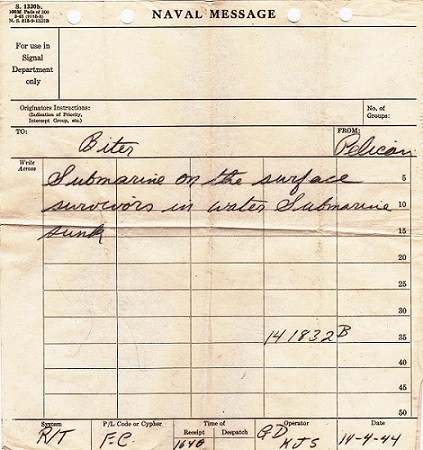 S. 1320b.
NAVAL MESSAGE
For use in
Signal
Department
only
Originators Instructions:
(Indication of Priority,
Intercept Group, etc.)
No. of
Groups:
TO: Biter
FROM: Pelican
Write
Across
Submarine on the surface
5
survivors in water Submarine
10
sunk
15
20
25
30
141832B
35
40
45
50
System
P/L Code or Cypher
Time of
Receipt
Despatch
Operator
Date
R/T
F.C.
1640
GD
KJS
14-4-44